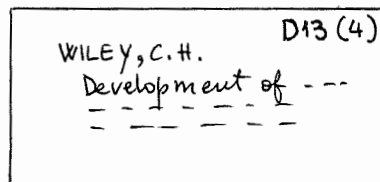 D13 (4)
WILEY, C.H.
Development of ----